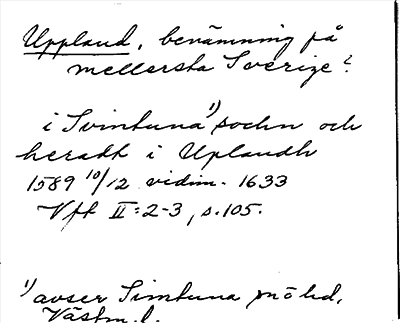 Uppland, benämning på
mellersta Sverige?
i Svintuna¹⁾ sochn och
heradt i Uplandh
1589 10/12 vidim. 1633
Vft II:2-3, s. 105.
¹⁾ avser Simtuna sn o hd,
Västm. l.